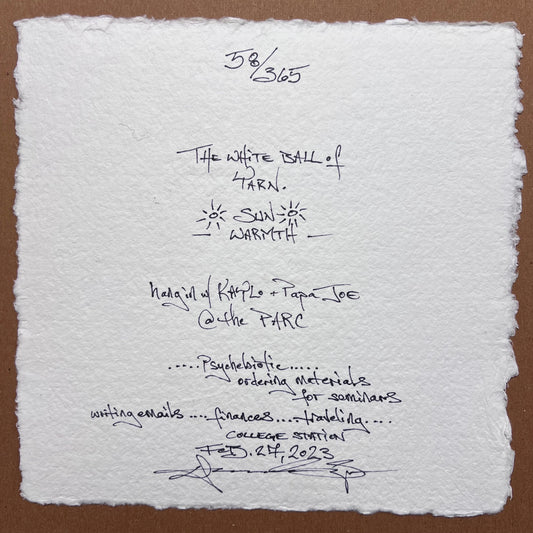 58/365
THE WHITE BALL of
YARN.
SUN
WARMTH
hangin w/ KAYLO + Papa JOE
@ the PARC
.....Psychebiotic.....
ordering materials
for seminars
writing emails .... finances .... traveling ....
COLLEGE STATION
FEB. 27, 2023